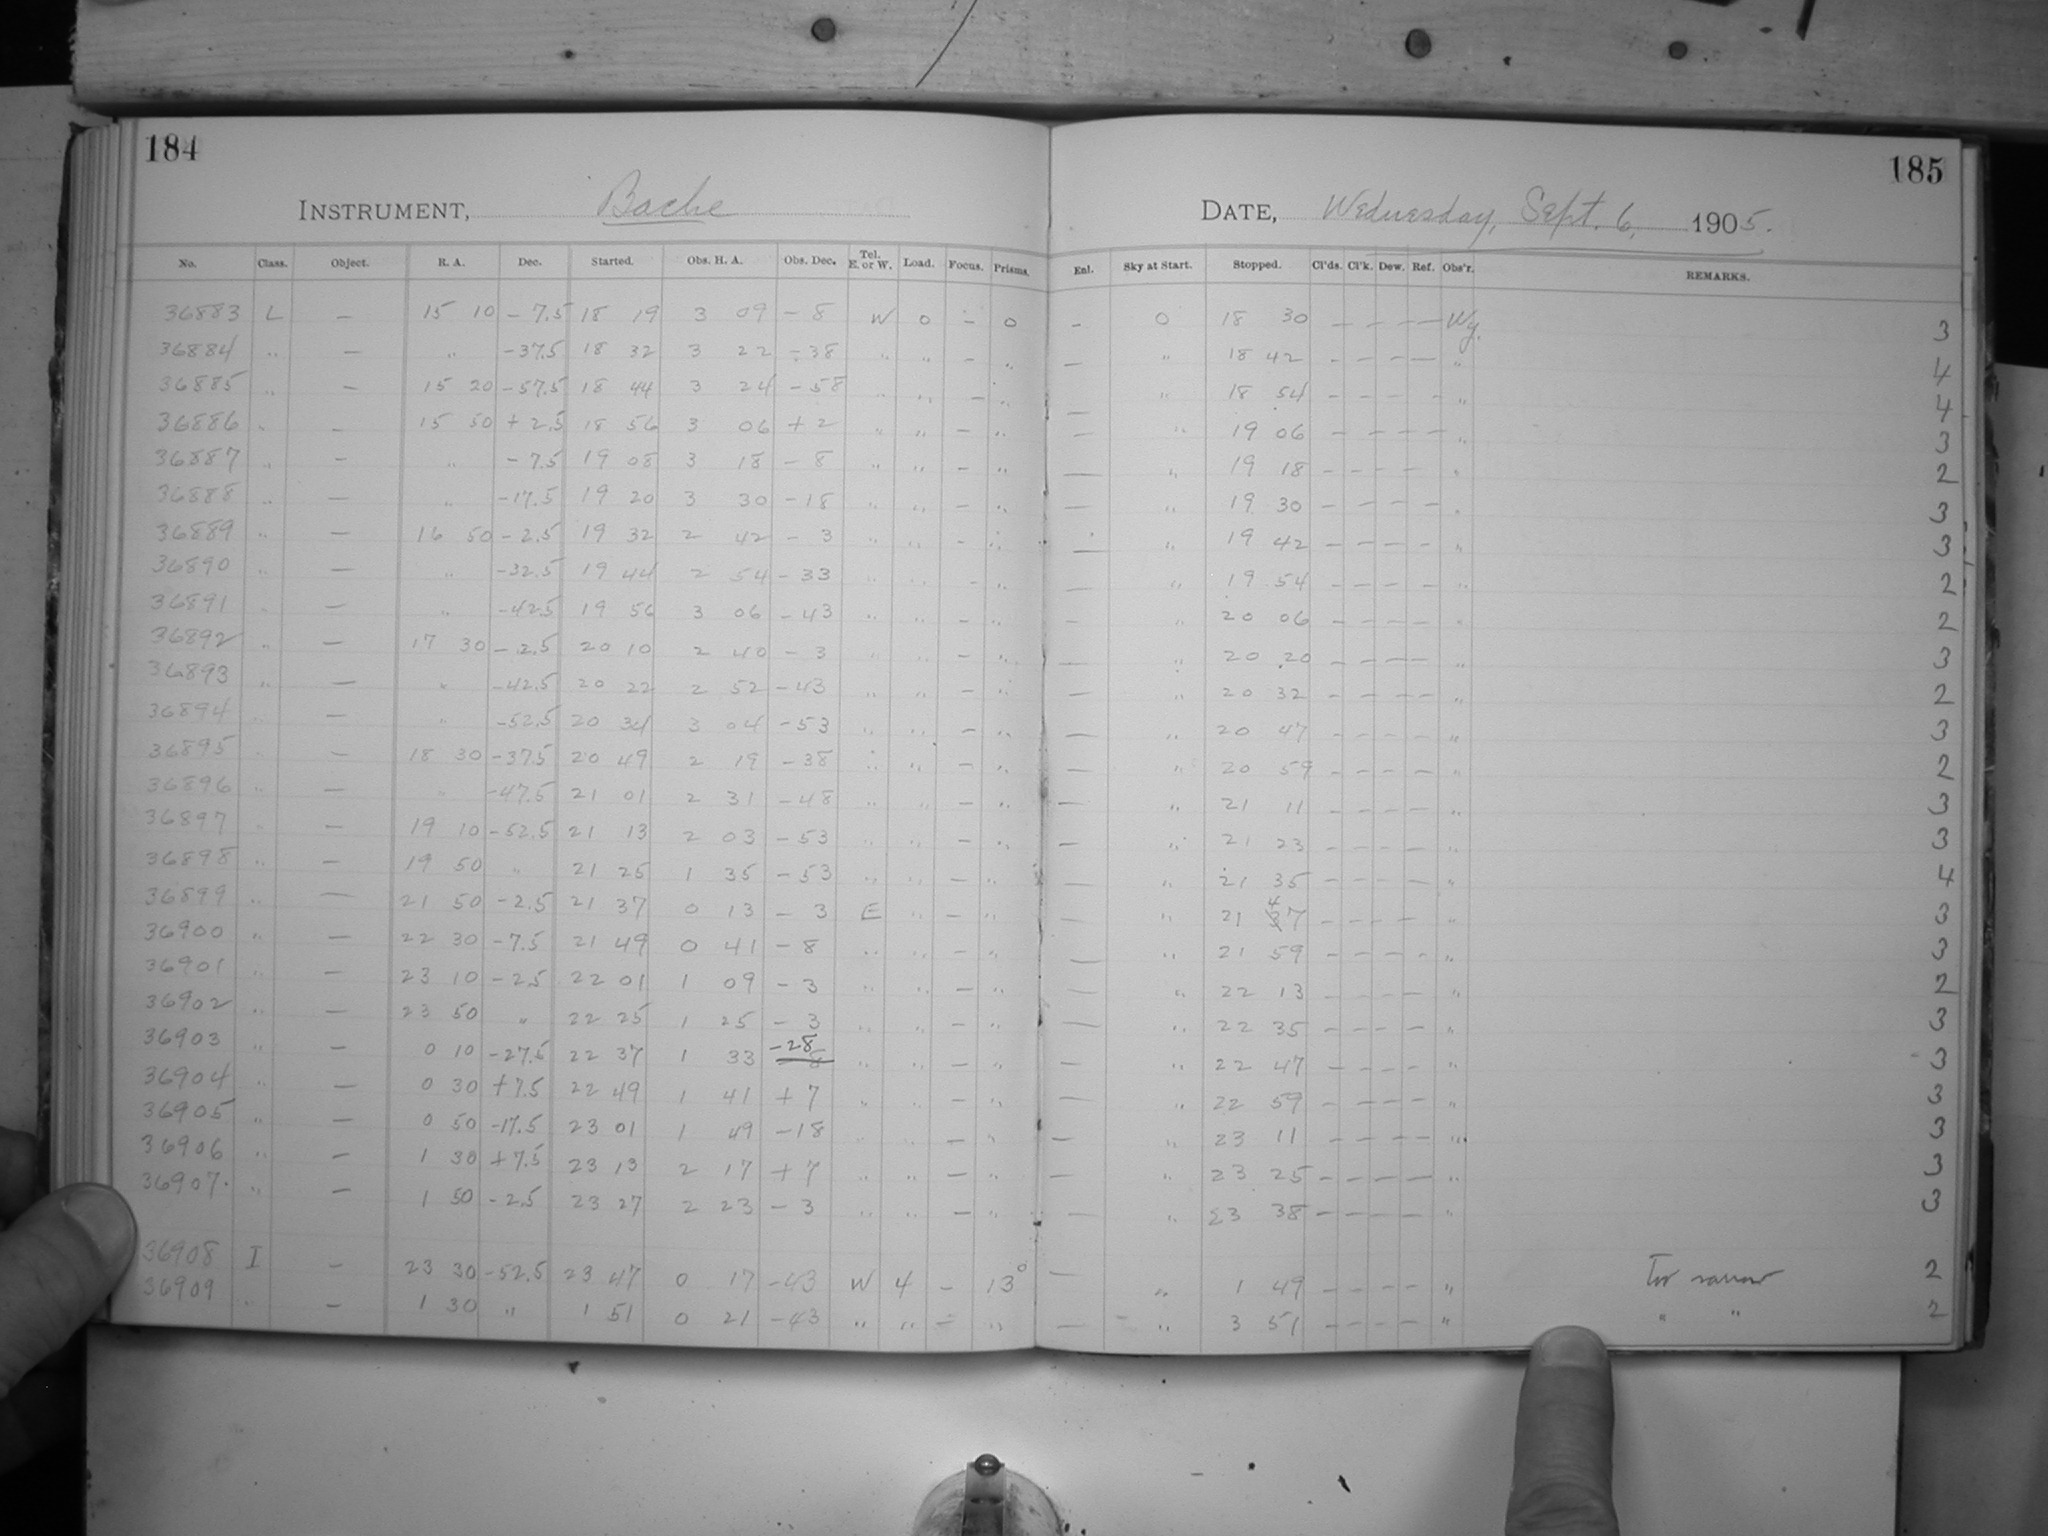 184
185
INSTRUMENT, Bache
DATE, Wednesday, Sept. 6, 1905.
No. Class. Object. R. A. Dec. Started. Obs. H. A. Obs. Dec. Tel. E. or W. Load. Focus. Prisms. Enl. Sky at Start. Stopped. Cl'ds. Cl'k. Dew. Ref. Obs'r. REMARKS.
36883 L — 15 10 -7.5 18 19 3 09 -8 W 0 - 0 - 0 18 30 — — — — Wy. 3
36884 " — " -37.5 18 32 3 22 -38 " " - " — " 18 42 - — — — " 4
36885 " — 15 20 -57.5 18 44 3 24 -58 " " - " — " 18 54 - - - - " 4
36886 " — 15 50 +2.5 18 56 3 06 +2 " " - " — " 19 06 - - - - " 3
36887 " — " -7.5 19 08 3 18 -8 " " - " — " 19 18 - - - - " 2
36888 " — " -17.5 19 20 3 30 -18 " " - " — " 19 30 - - - - " 3
36889 " — 16 50 -2.5 19 32 2 42 -3 " " - " — " 19 42 - - - - " 3
36890 " — " -32.5 19 44 2 54 -33 " " - " — " 19 54 - - - - " 2
36891 " — " -42.5 19 56 3 06 -43 " " - " — " 20 06 - - - - " 2
36892 " — 17 30 -2.5 20 10 2 40 -3 " " - " — " 20 20 - - - - " 3
36893 " — " -42.5 20 22 2 52 -43 " " - " — " 20 32 - - - - " 2
36894 " — " -52.5 20 34 3 04 -53 " " - " — " 20 47 - - - - " 3
36895 " — 18 30 -37.5 20 49 2 19 -38 " " - " — " 20 59 - - - - " 2
36896 " — " -47.5 21 01 2 31 -48 " " - " — " 21 11 - - - - " 3
36897 " — 19 10 -52.5 21 13 2 03 -53 " " - " — " 21 23 - - - - " 3
36898 " — 19 50 " 21 25 1 35 -53 " " - " — " 21 35 - - - - " 4
36899 " — 21 50 -2.5 21 37 0 13 -3 E " - " — " 21 47 - - - - " 3
36900 " — 22 30 -7.5 21 49 0 41 -8 " " - " — " 21 59 - - - - " 3
36901 " — 23 10 -2.5 22 01 1 09 -3 " " - " — " 22 13 - - - - " 2
36902 " — 23 50 " 22 25 1 25 -3 " " - " — " 22 35 - - - - " 3
36903 " — 0 10 -27.5 22 37 1 33 -28 " " - " — " 22 47 - - - - " 3
36904 " — 0 30 +7.5 22 49 1 41 +7 " " - " — " 22 59 - - - - " 3
36905 " — 0 50 -17.5 23 01 1 49 -18 " " - " — " 23 11 - - - - " 3
36906 " — 1 30 +7.5 23 13 2 17 +7 " " - " — " 23 25 - - - - " 3
36907 " — 1 50 -2.5 23 27 2 23 -3 " " - " — " 23 38 - - - - " 3
36908 I — 23 30 -52.5 23 47 0 17 -43 W 4 - 13° — " 1 49 - - - - " Too narrow 2
36909 " — 1 30 " 1 51 0 21 -43 " " - " — " 3 51 - - - - " " " 2